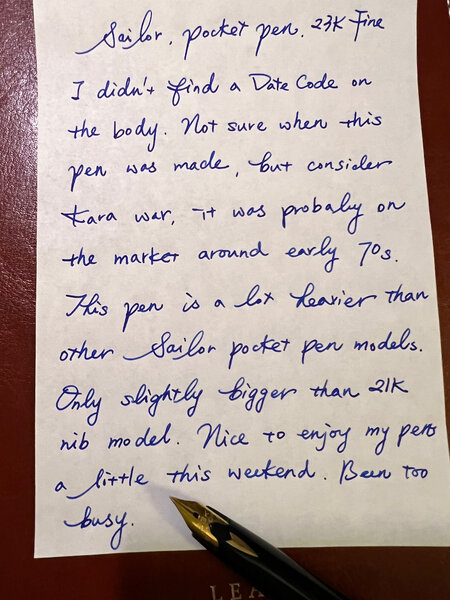 Sailor. pocket pen. 23K Fine
I didn't find a Date Code on
the body. Not sure when this
pen was made, but consider
Kara war, it was probaly on
the market around early 70s.
This pen is a lot heavier than
other Sailor pocket pen models.
Only slightly bigger than 21K
nib model. Nice to enjoy my pens
a little this weekend. Been too
busy.
LEA